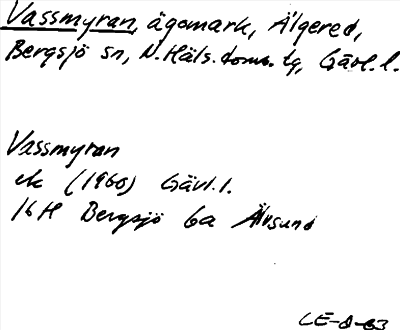 Vassmyran, ägomark, Älgered,
Bergsjö sn, N. Häls. doms. tg, Gävl. l.
Vassmyran
ek (1960) Gävl. l.
16H Bergsjö 6a Älvsund